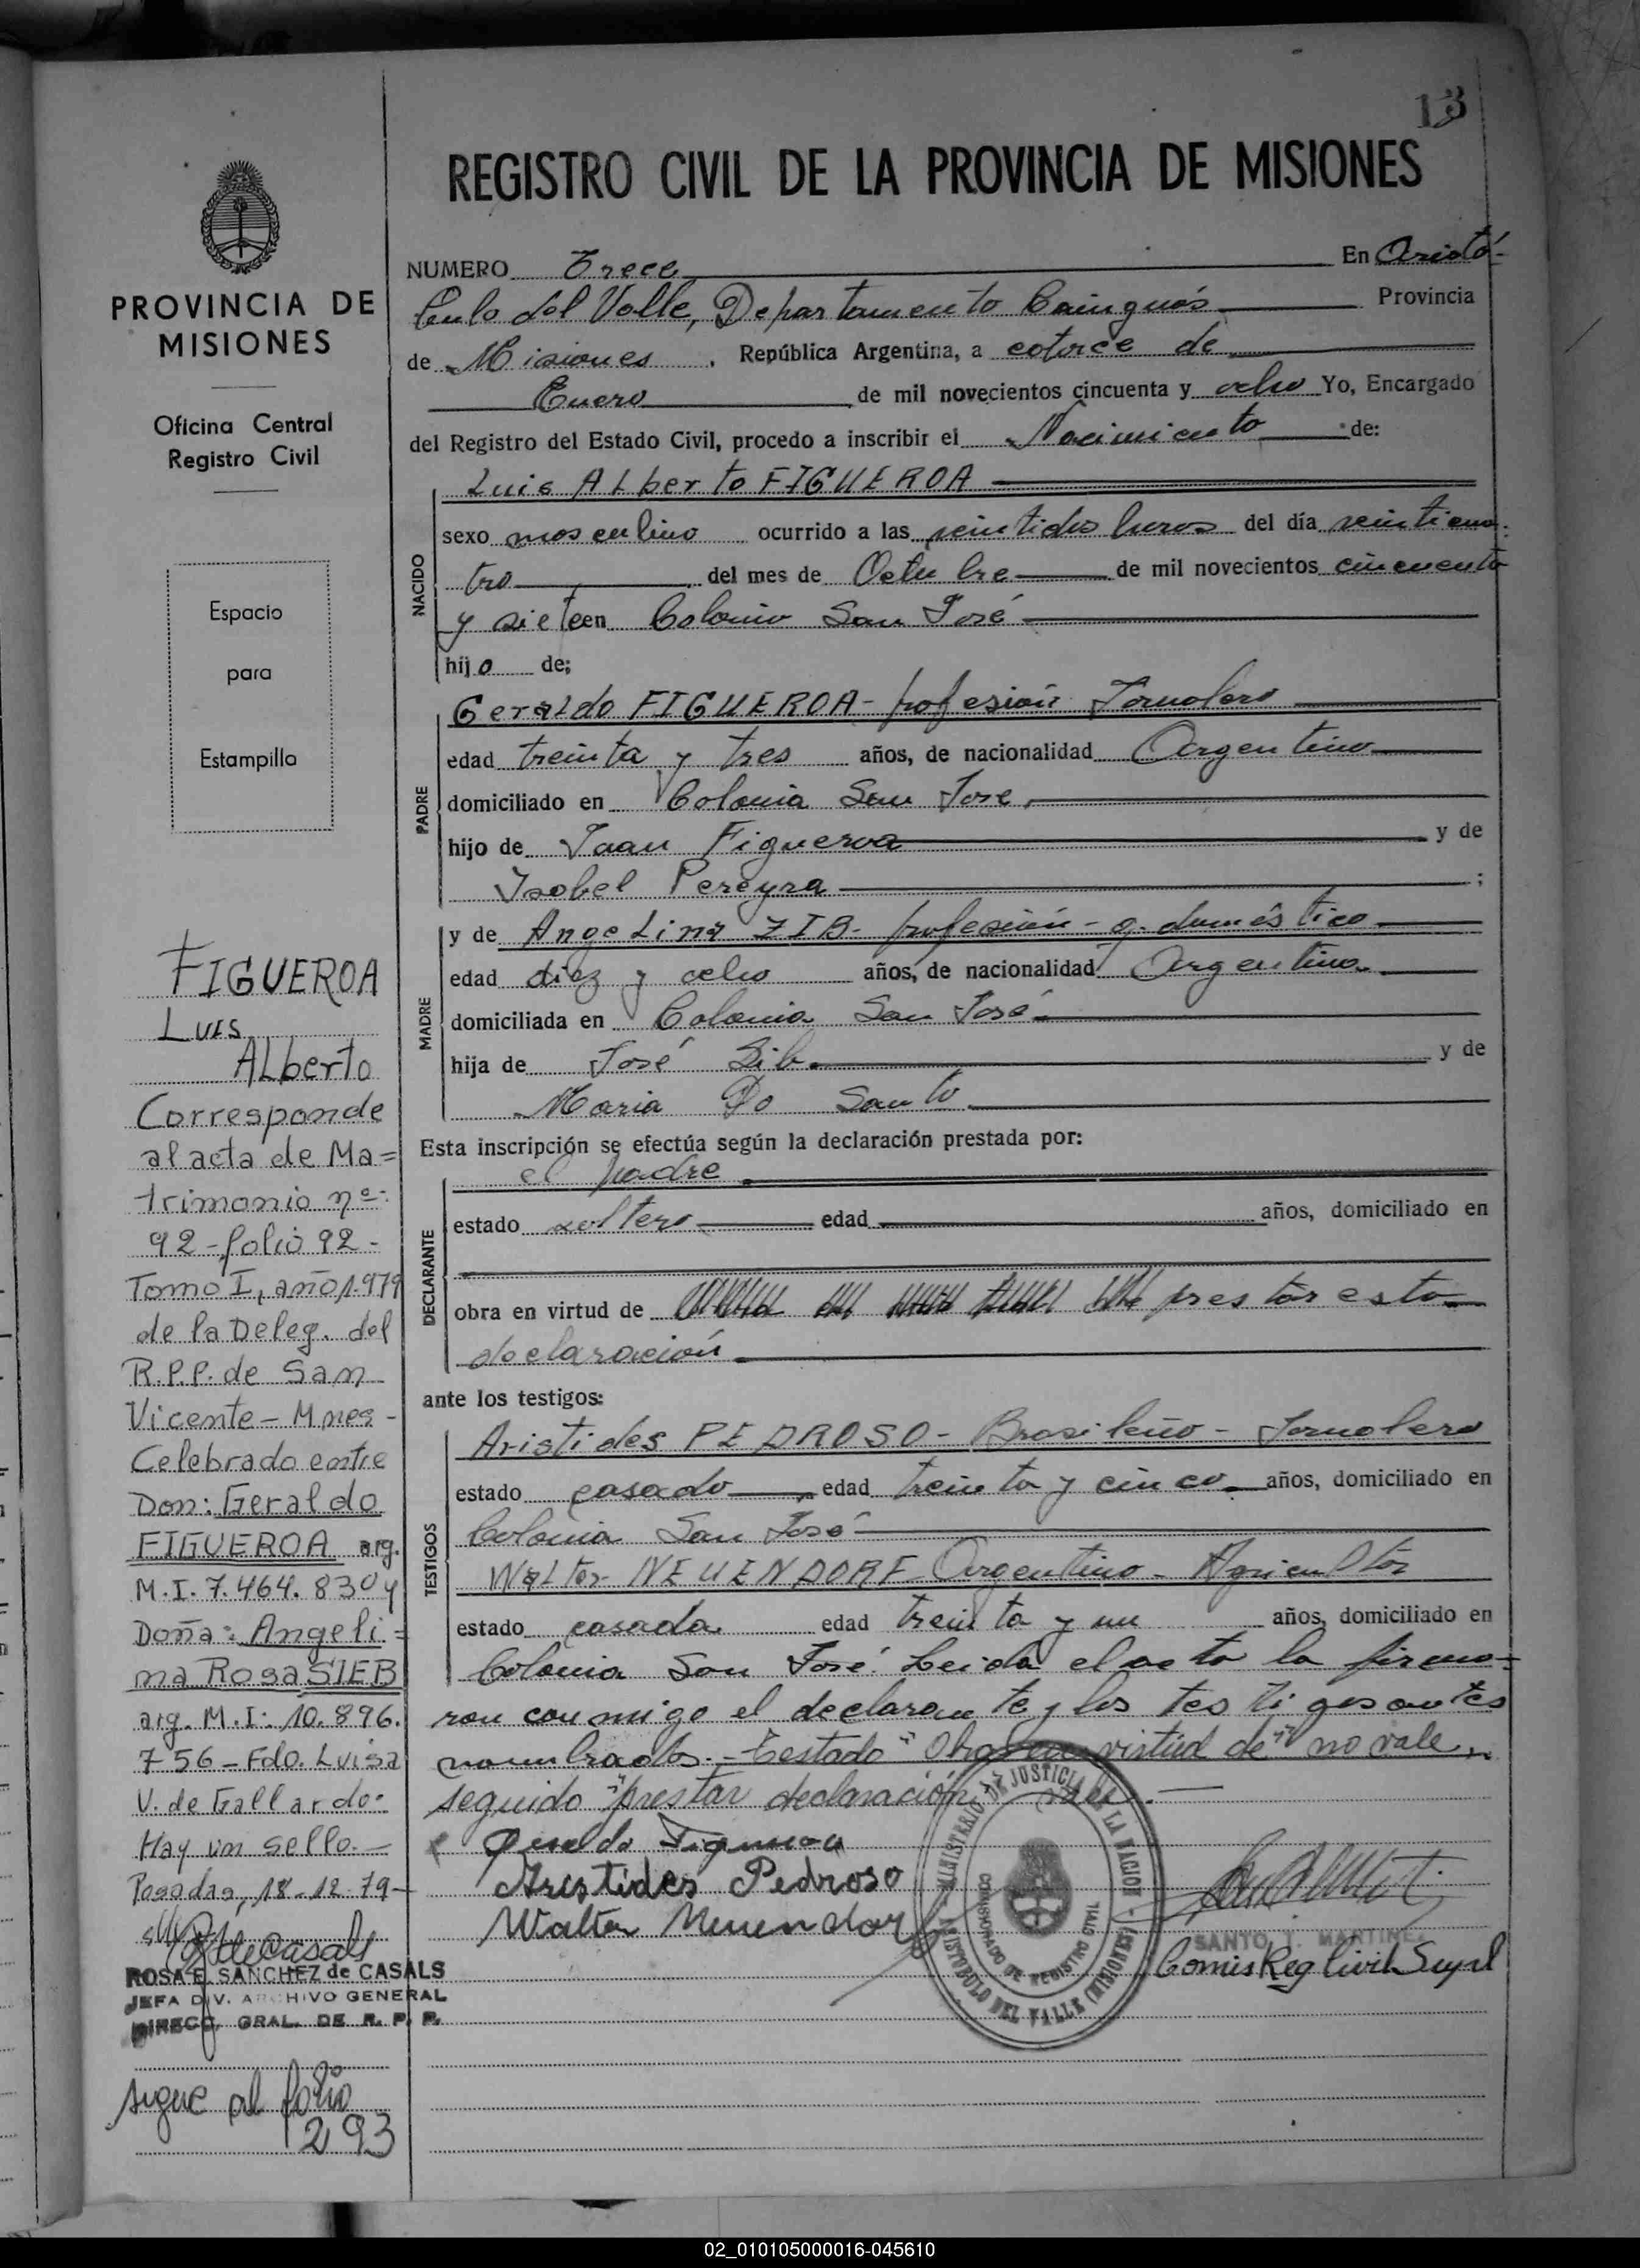 13
REGISTRO CIVIL DE LA PROVINCIA DE MISIONES
PROVINCIA DE
MISIONES
Oficina Central
Registro Civil
Espacio
para
Estampilla
NUMERO Trece En Aristó-
bulo del Valle, Departamento Cainguás Provincia
de Misiones, República Argentina, a catorce de
Enero de mil novecientos cincuenta y ocho Yo, Encargado
del Registro del Estado Civil, procedo a inscribir el Nacimiento de:
NACIDO
Luis Alberto FIGUEROA
sexo masculino ocurrido a las veintidos horas del día veinticua-
tro del mes de Octubre de mil novecientos cincuenta
y siete en Colonia San José
hijo de;
PADRE
Geraldo FIGUEROA - profesión Jornalero
edad treinta y tres años, de nacionalidad Argentino
domiciliado en Colonia San Jose
hijo de Juan Figueroa y de
Isabel Pereyra ;
MADRE
y de Angelina ZIB - profesión - q. doméstico
edad diez y ocho años, de nacionalidad Argentina
domiciliada en Colonia San José
hija de José Zib y de
Maria Do Santo
Esta inscripción se efectúa según la declaración prestada por:
DECLARANTE
el padre
estado soltero edad años, domiciliado en
obra en virtud de prestar esta
declaración
ante los testigos:
TESTIGOS
Aristides PEDROSO - Brasileño - Jornalero
estado casado edad treinta y cinco años, domiciliado en
Colonia San José
Walter NEUENDORF - Argentino - Agricultor
estado casado edad treinta y un años, domiciliado en
Colonia San José. Leida el acta la firma-
ron conmigo el declarante y los testigos antes
nombrados. - Testado "Obra en virtud de" no vale,
seguido "prestar declaración" vale. -
Geraldo Figueroa
Aristides Pedroso
Walter Neuendorf
MINISTERIO DE JUSTICIA DE LA NACION
COMISIONADO DE REGISTRO CIVIL
ARISTOBULO DEL VALLE (MISIONES)
SANTO T. MARTINEZ
Comis Reg Civil Supl
FIGUEROA
Luis
Alberto
Corresponde
al acta de Ma=
trimonio nº:
92 - folio 92 -
Tomo I, año 1.979
de la Deleg. del
R.P.P. de San
Vicente - Mnes -
Celebrado entre
Don: Geraldo
FIGUEROA arg.
M.I. 7.464.830 y
Doña: Angeli=
na Rosa SIEB
arg. M.I: 10.896.
756 - Fdo. Luisa
V. de Gallardo:
Hay un sello. -
Posadas, 18-12-79-
ROSA E. SANCHEZ de CASALS
JEFA DIV. ARCHIVO GENERAL
DIRECC. GRAL. DE R. P. P.
sigue al folio
293
02_010105000016-045610